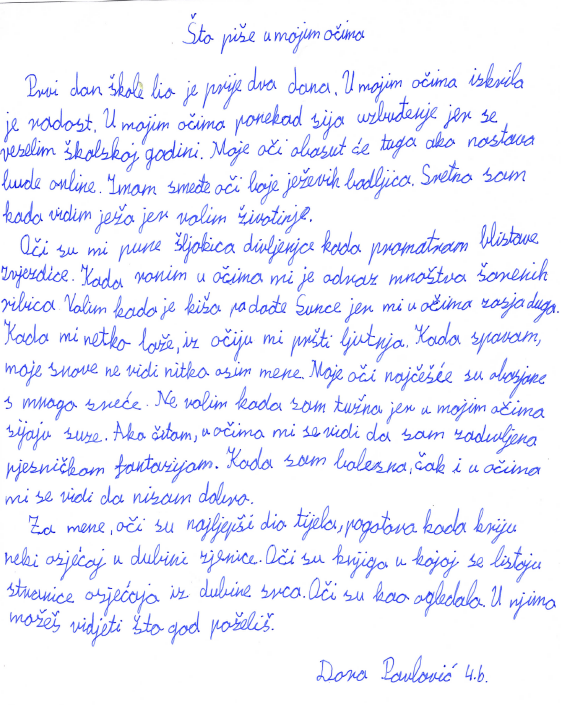 Što piše u mojim očima
Prvi dan škole bio je prije dva dana. U mojim očima iskrila
je radost. U mojim očima ponekad sija uzbuđenje jer se
veselim školskoj godini. Moje oči obasut će tuga ako nastava
bude online. Imam smeđe oči boje ježevih bodljica. Sretna sam
kada vidim ježa jer volim životinje.
Oči su mi pune šljokica divljenja kada promatram blistave
zvjezdice. Kada ronim u očima mi je odraz mnoštva šarenih
ribica Volim kada je kiša pa dođe Sunce jer mi u očima zasja duga.
Kada mi netko laže, iz očiju mi pršti ljutnja. Kada spavam,
moje snove ne vidi nitko osim mene. Moje oči najčešće su obasjane
s mnogo sreće. Ne volim kada sam tužna jer u mojim očima
sijaju suze. Ako čitam, u očima mi se vidi da sam zadivljena
pjesničkom fantazijom. Kada sam bolesna, čak i u očima
mi se vidi da nisam dobro.
Za mene, oči su najljepši dio tijela, pogotovo kada kriju
neki osjećaj u dubini zjenice. Oči su knjiga u kojoj se listaju
stranice osjećaja iz dubine srca. Oči su kao ogledala. U njima
možeš vidjeti što god poželiš.
Dora Pavlović 4.b.